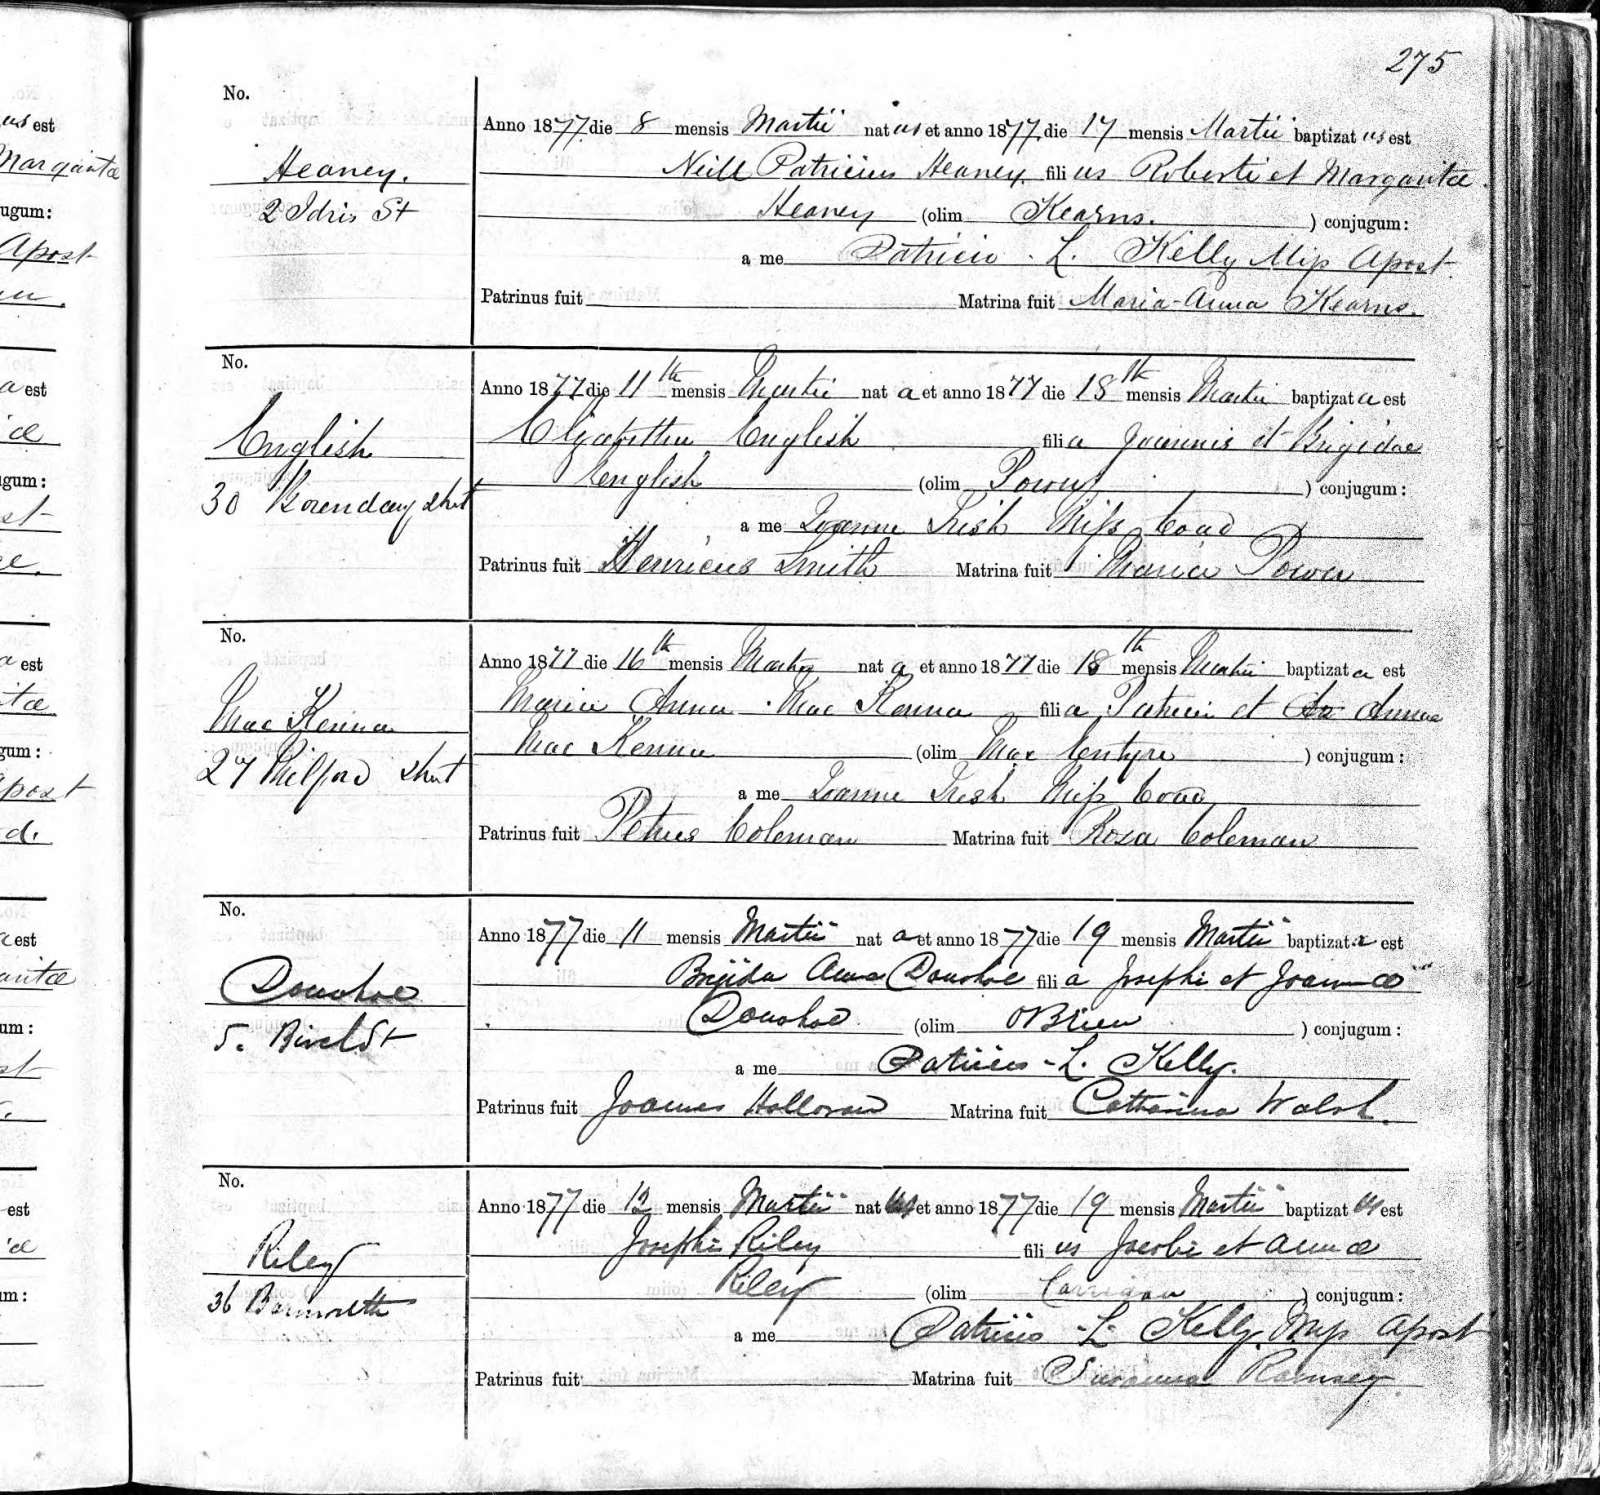 us est
Margaritæ
ugum:
Apost
a est
æ
ugum:
st
a est
itæ
gum:
post
d.
a est
aritæ
um:
st
est
um:
275
No.
Heaney.
2 Idris St
Anno 1877 die 8 mensis Martii natus et anno 1877 die 17 mensis Martii baptizatus est
Neill Patricius Heaney filius Roberti et Margaritæ.
Heaney (olim Kearns.) conjugum:
a me Patricio - L. Kelly Miss Apost
Patrinus fuit Matrina fuit Maria-Anna Kearns.
No.
English
30 street
Anno 1877 die 11th mensis Martii nata et anno 1877 die 18th mensis Martii baptizata est
Elizabetha English filia Joannis et Brigidae
English (olim Power) conjugum:
a me Joanne Irish Miss Coad
Patrinus fuit Henricus Smith Matrina fuit Maria Power
No.
Mac Kenna
27 Milford street
Anno 1877 die 16th mensis Martii nata et anno 1877 die 18th mensis Martii baptizata est
Maria Anna Mac Kenna filia Patricii et Annae
Mac Kenna (olim Mac Entyre) conjugum:
a me Joanne Irish Miss Coad
Patrinus fuit Petrus Coleman Matrina fuit Rosa Coleman
No.
Donohoe
5. St
Anno 1877 die 11 mensis Martii nata et anno 1877 die 19 mensis Martii baptizata est
Brigida Anna Donohoe filia Josephi et Joannæ
Donohoe (olim OBrien) conjugum:
a me Patricio - L. Kelly.
Patrinus fuit Joannes Holloran Matrina fuit Catharina Walsh.
No.
Riley
36 Barmouth
Anno 1877 die 12 mensis Martii natus et anno 1877 die 19 mensis Martii baptizatus est
Josephi Riley filius Jacobi et Annæ
Riley (olim Corrigan) conjugum:
a me Patricio - L. Kelly. Miss Apost
Patrinus fuit Matrina fuit Susanna Ramsey.